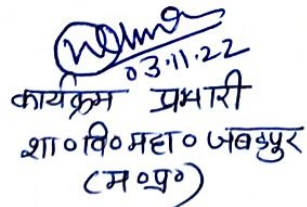 03.11.22
कार्यक्रम प्रभारी
शा० वि० महा० जबलपुर
(म०प्र०)